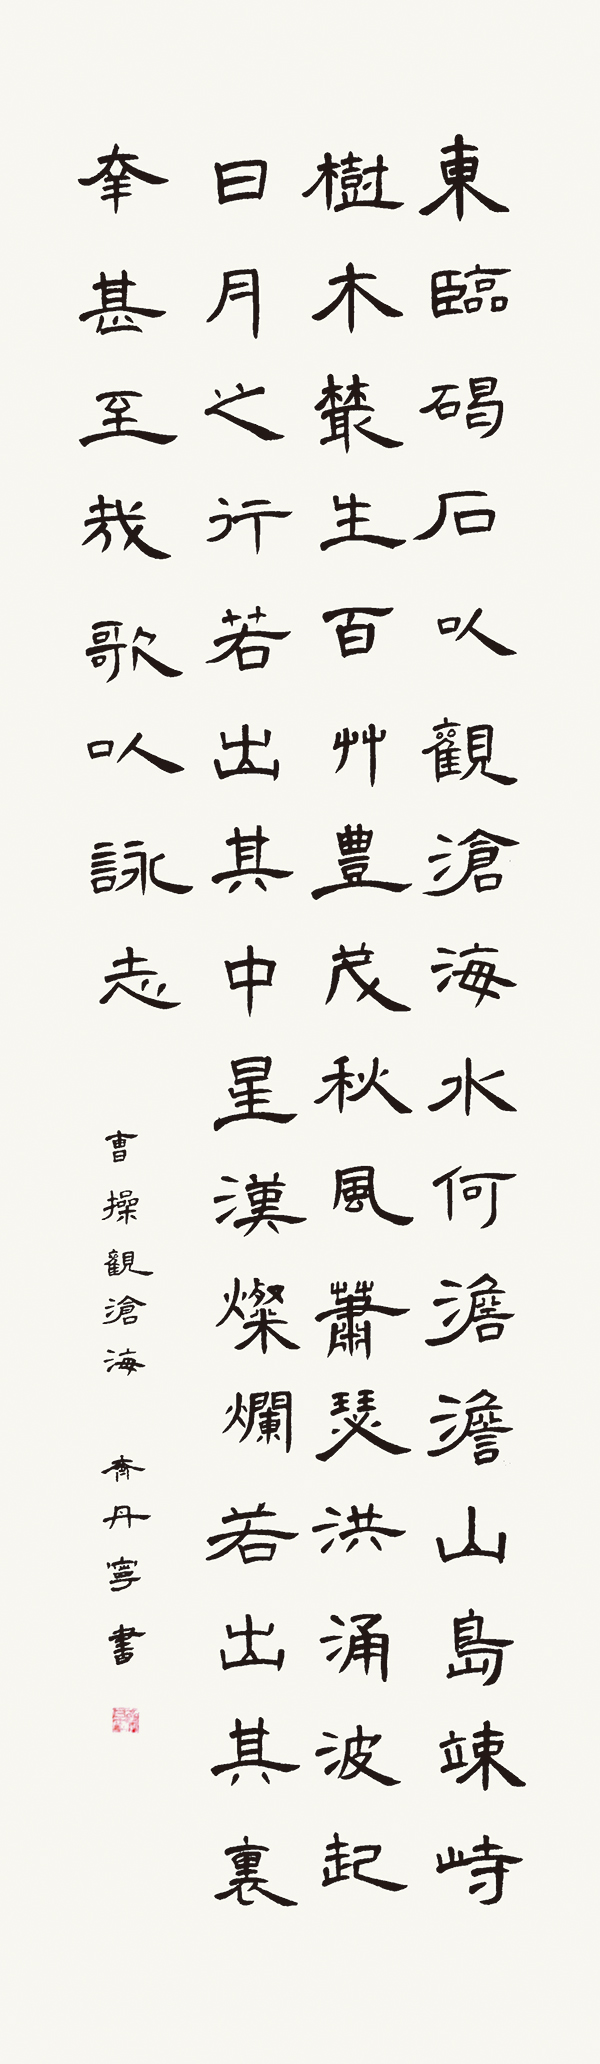 東臨碣石以觀滄海水何澹澹山島竦峙
樹木叢生百艸豐茂秋風蕭瑟洪涌波起
日月之行若出其中星漢燦爛若出其裏
幸甚至哉歌以詠志
曹操觀滄海 齊丹寧書